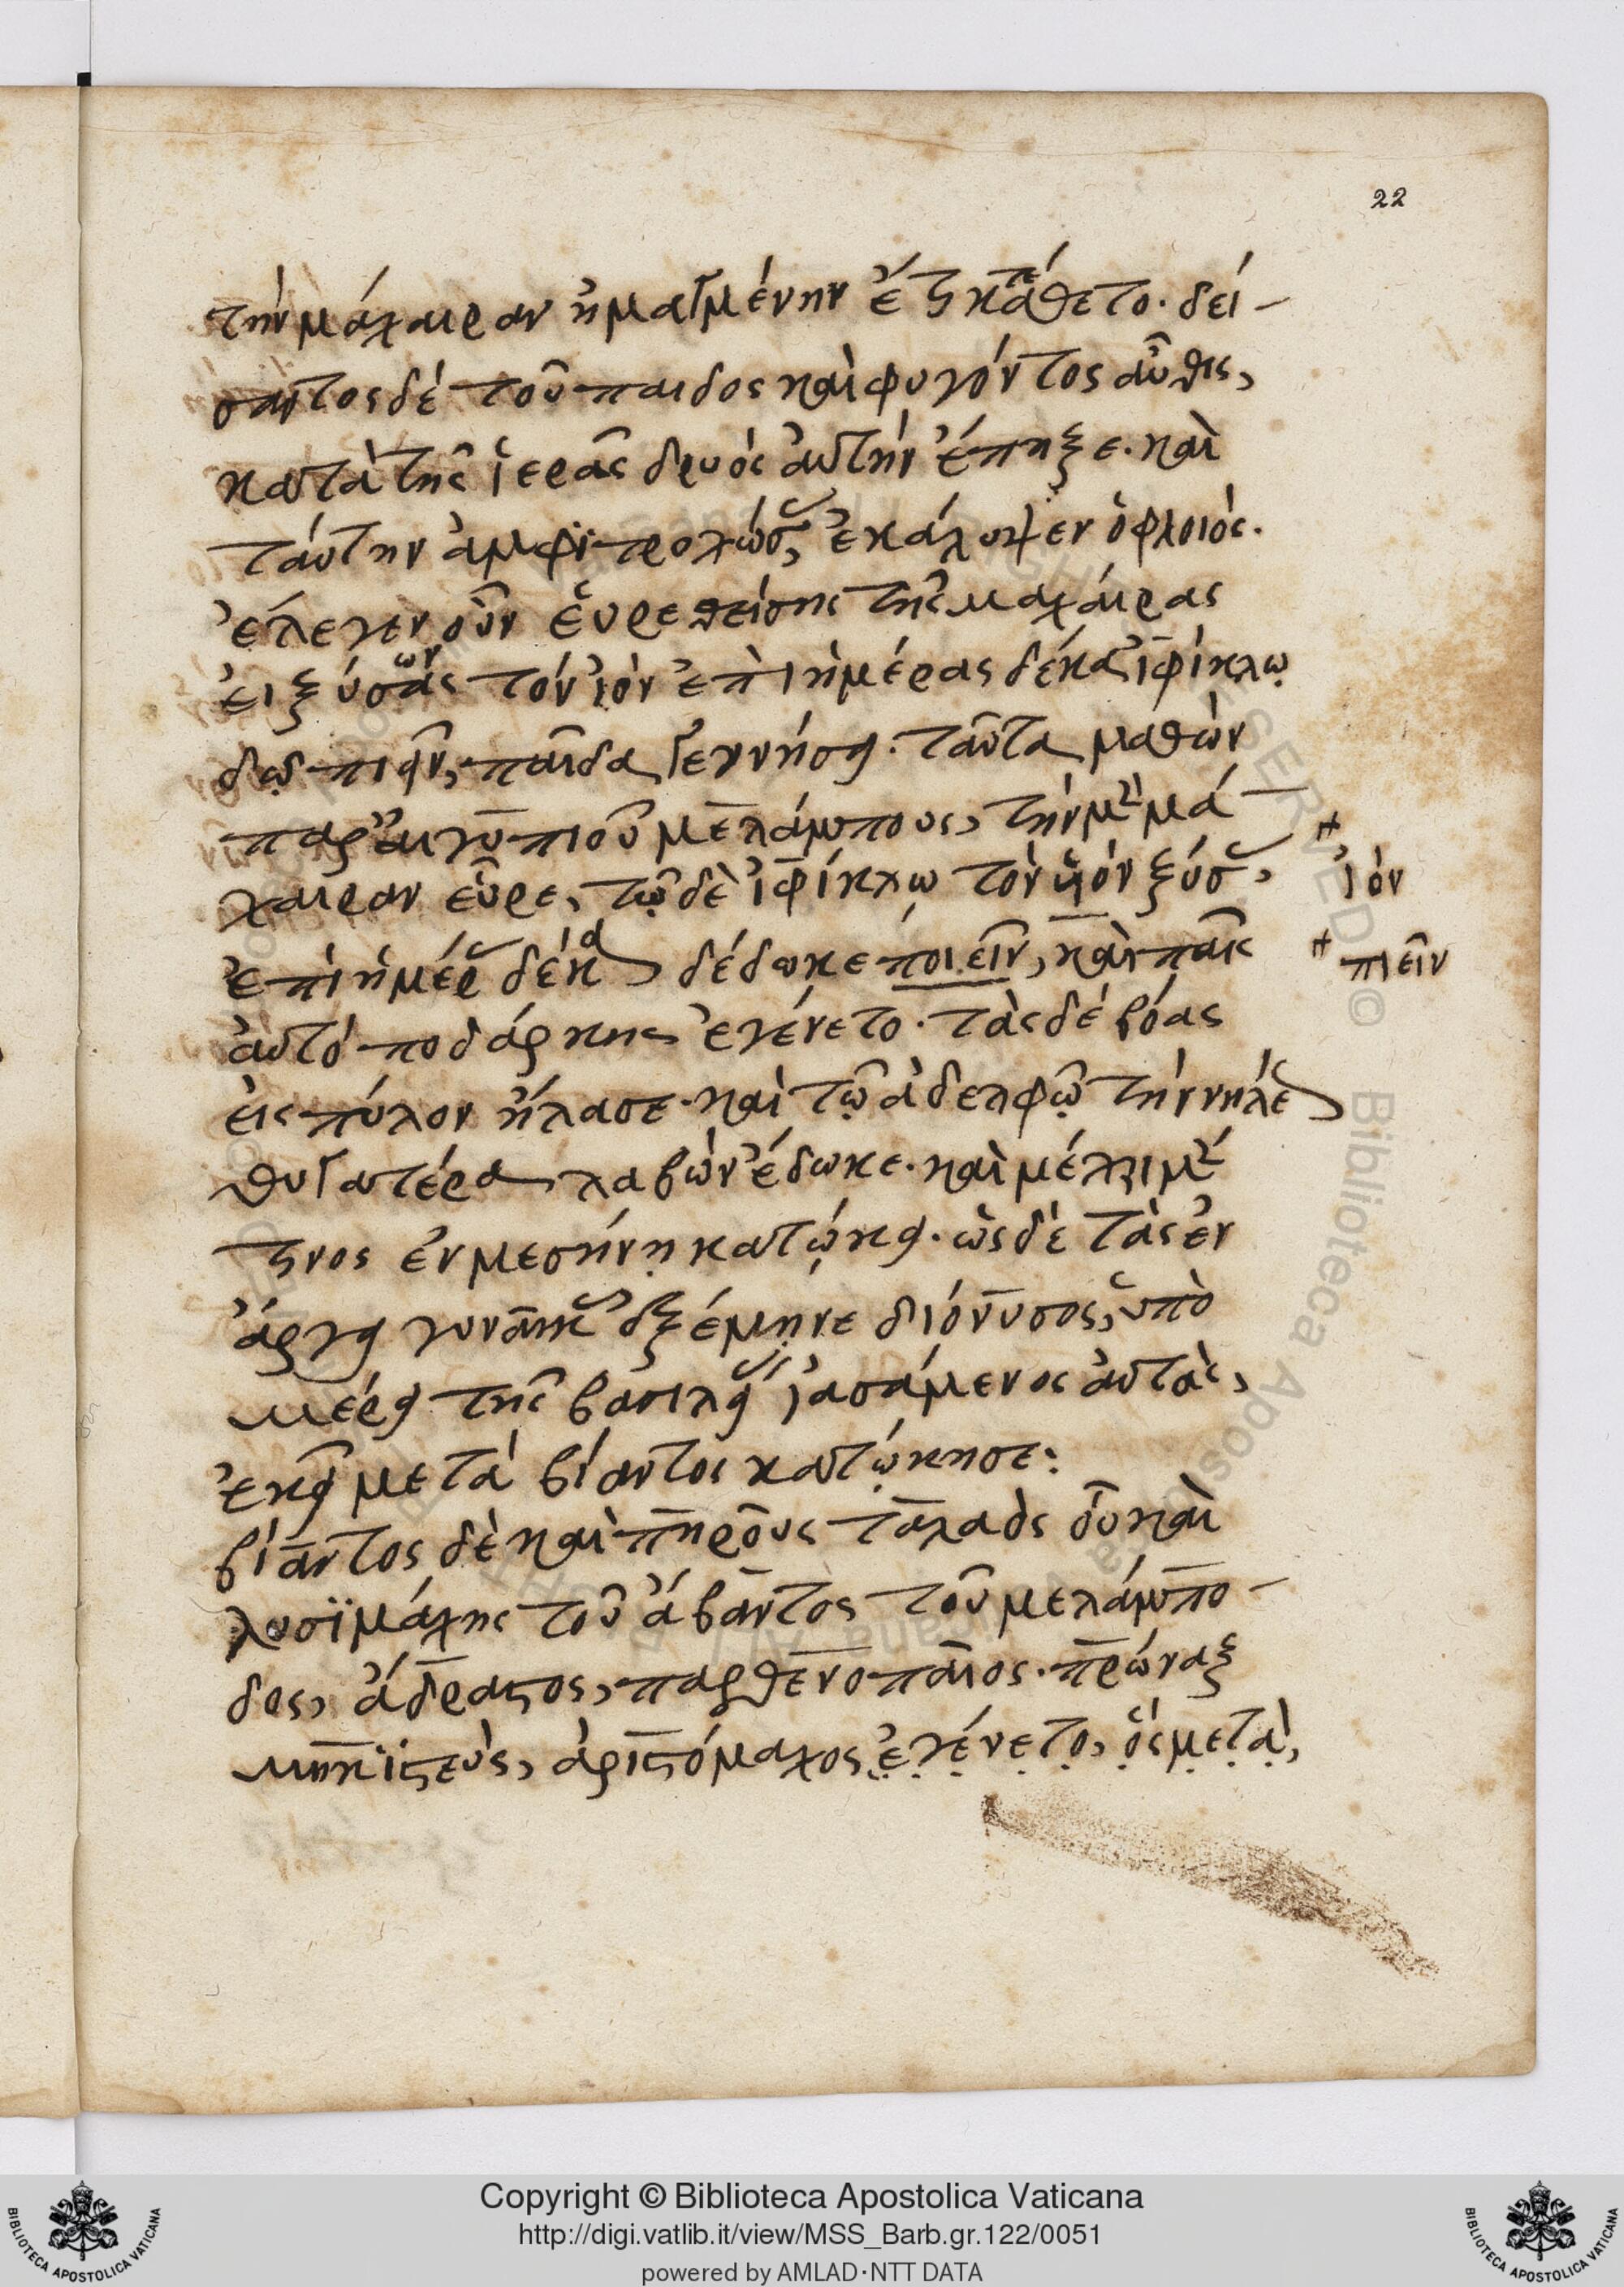 22
τὴν μάχαιραν ἡμαγμένην ἔτι κατέθετο. δεί-
σαντος δὲ τοῦ παιδὸς καὶ φυγόντος αὖθις,
κατὰ τῆς ἱερᾶς δρυὸς αὐτὴν ἔπηξε. καὶ
ταύτην ἀμφιτροχώσας, ἐκάλυψεν ὁ φλοιός.
ἔλεγεν οὖν εὑρεθείσης τῆς μαχαίρας
εἰ ξύσας τὸν ἰὸν ἐπὶ ἡμέρας δέκα ἰφίκλῳ
δῷ πιεῖν, παῖδα γεννήσει. ταῦτα μαθὼν
παρ' αἰγυπιοῦ μελάμπους, τὴν μὲν μά-
χαιραν εὗρε, τῷ δὲ ἰφίκλῳ τὸν υἱὸν ξύσας,
ἐπὶ ἡμέρας δέκα δέδωκε ποιεῖν, καὶ παῖς
αὐτῷ ποδάρκης ἐγένετο. τὰς δὲ βόας
εἰς πύλον ἤλασε. καὶ τῷ ἀδελφῷ τὴν νηλέως
θυγατέρα λαβὼν ἔδωκε. καὶ μέχρι μέν
τινος ἐν μεσήνῃ κατῴκει. ὡς δὲ τὰς ἐν
ἄργει γυναῖκας ἐξέμηνε διόνυσος, ὑπὸ
μέρει τῆς βασιλείας ἰασάμενος αὐτάς,
ἐκεῖ μετὰ βίαντος κατῴκησε:
βίαντος δὲ καὶ πηροῦς ταλαὸς οὗ καὶ
λυσιμάχης τοῦ ἄβαντος τοῦ μελάμπο-
δος, ἄδραστος, παρθενοπαῖος. πρῶναξ
μηκιστεὺς, ἀριστόμαχος ἐγένετο, ὃς μετὰ,
ἰόν
πιεῖν
Copyright © Biblioteca Apostolica Vaticana
http://digi.vatlib.it/view/MSS_Barb.gr.122/0051
powered by AMLAD·NTT DATA
BIBLIOTECA APOSTOLICA VATICANA
BIBLIOTECA APOSTOLICA VATICANA